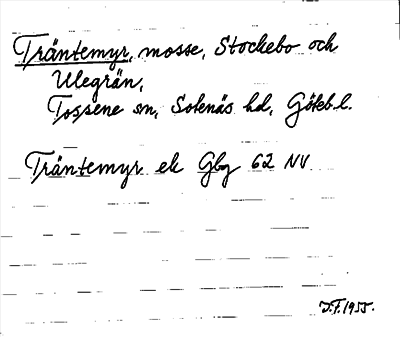 Träntemyr, mosse, Stockebo och
Ulegrän,
Tossene sn, Sotenäs hd, Göteb. l.
Träntemyr ek Gbg 62 NV.
J.F. 1955.